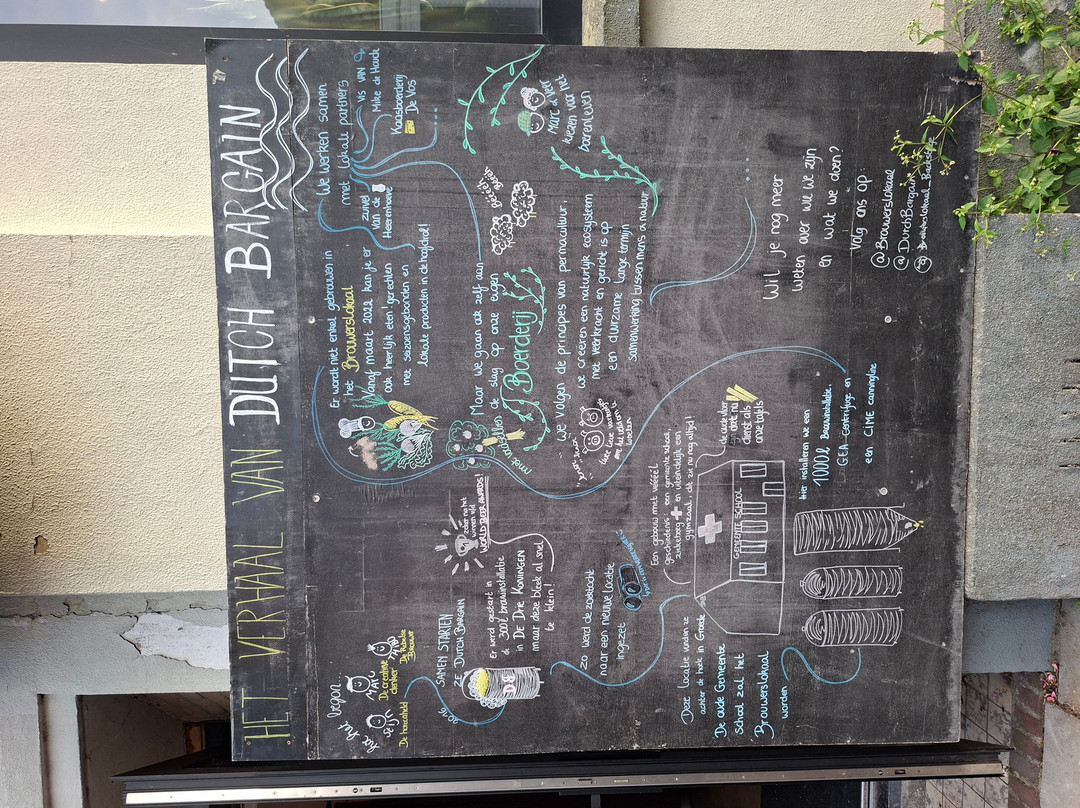 HET VERHAAL VAN DUTCH BARGAIN
hoe het begon...
De creatieve
denker
De Rebelse
Brouwer
SAMEN STARTEN
ZE DUTCH BARGAIN
2016
DB
Er werd gestart in
300l brouwinstallatie
in DE DRIE KONINGEN
maar deze bleek al snel
te klein!
zeker na het
winnen v/d
WORLD BEER AWARDS
Zo werd de zoektocht
naar een nieuwe locatie
ingezet
Deze locatie vonden ze
achter de hoek in Groede
De oude Gemeente
School zal het
Brouwerslokaal
worden
Een gebouw met véééél
geschiedenis: een gemeente school,
ziekeborg en uiteindelijk een
gymzaal, dit zie nu nog altijd!
GEMEENTE SCHOOL
de oude vloer
doet nu
dienst als
onze tafels
Hier installeren we een
1000l Brouwinstallatie.
GEA Centrifuge en
een CIME canningline
Er wordt niet enkel gebrouwen in
het Brouwerslokaal
Vanaf maart 2022 kan je er
ook heerlijk eten! gerechten
met seizoensgebonden en
lokale producten in de hoofdrol!
We werken samen
met lokale partners
VIS VAN
Mike de Haude
Kaasboerderij
De Vos
zuivel
van de
Heerenhoeve
Maar we gaan ook zelf aan
de slag op onze eigen
Boerderij
met wisenten
Marc & Vera
kiezen voor het
boerenleven
We volgen de principes van permacultuur,
we creëren een natuurlijk ecosysteem
met veerkracht en gericht is op
een duurzame lange termijn
samenwerking tussen mens & natuur
Wil je nog meer
weten over wie we zijn
en wat we doen?
Volg ons op:
@Brouwerslokaal
@DutchBargain